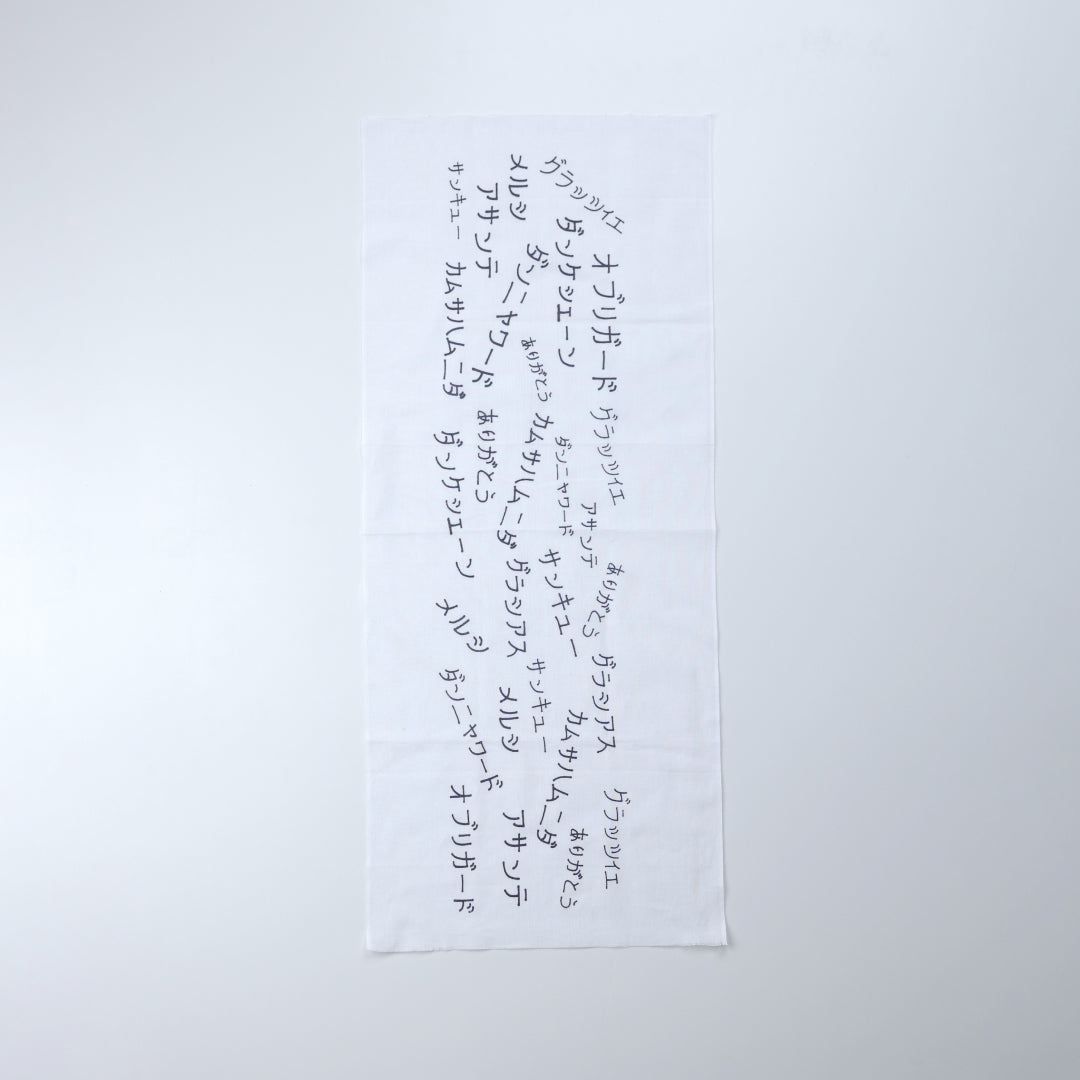 グラッツィエ
オブリガード
グラッツィエ
アサンテ
ありがとう
グラシアス
グラッツィエ
ダンケシェーン
ダンニャワード
サンキュー
カムサハムニダ
ありがとう
メルシ
ダンニャワード
ありがとう
カムサハムニダ
グラシアス
サンキュー
アサンテ
ありがとう
メルシ
アサンテ
サンキュー
カムサハムニダ
ダンケシェーン
メルシ
ダンニャワード
オブリガード